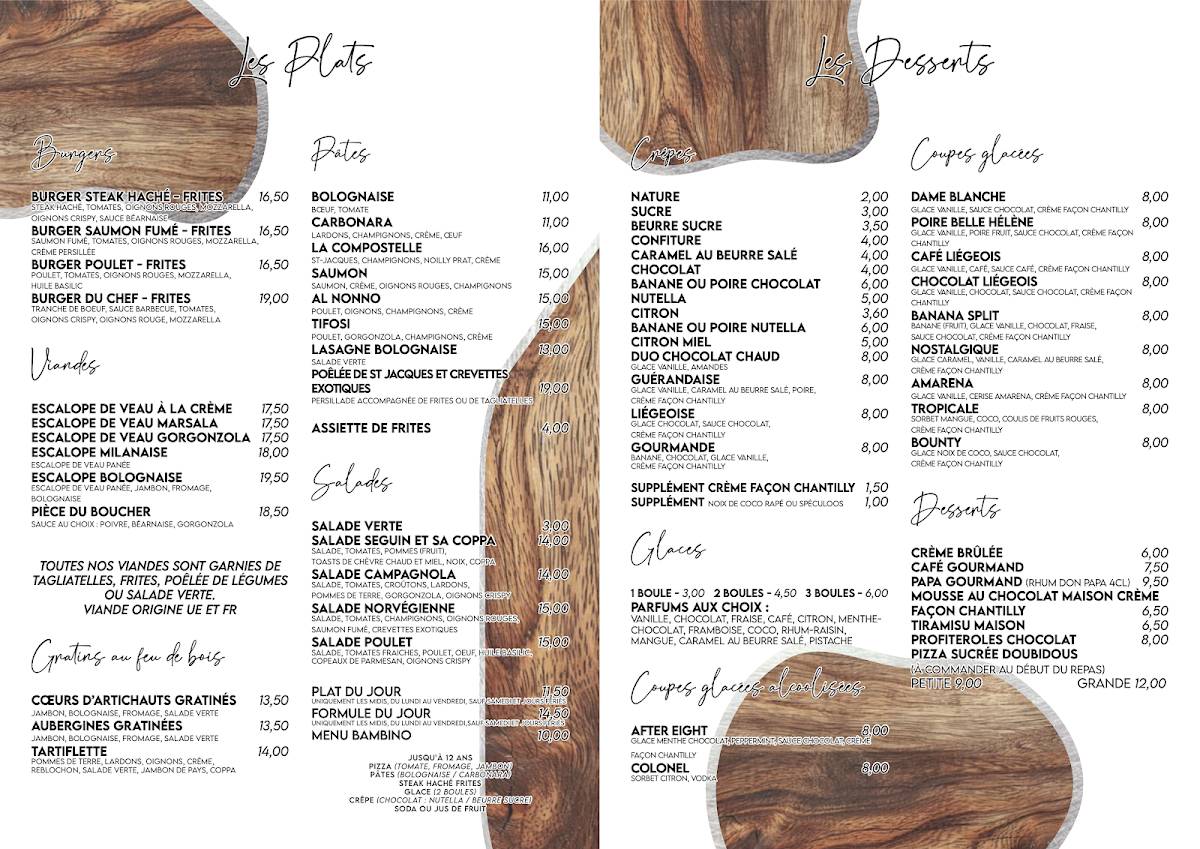 Les Plats
Burgers
BURGER STEAK HACHÉ - FRITES 16,50
STEAK HACHÉ, TOMATES, OIGNONS ROUGES, MOZZARELLA,
OIGNONS CRISPY, SAUCE BÉARNAISE
BURGER SAUMON FUMÉ - FRITES 16,50
SAUMON FUMÉ, TOMATES, OIGNONS ROUGES, MOZZARELLA,
CRÈME PERSILLÉE
BURGER POULET - FRITES 16,50
POULET, TOMATES, OIGNONS ROUGES, MOZZARELLA,
HUILE BASILIC
BURGER DU CHEF - FRITES 19,00
TRANCHE DE BOEUF, SAUCE BARBECUE, TOMATES,
OIGNONS CRISPY, OIGNONS ROUGE, MOZZARELLA
Viandes
ESCALOPE DE VEAU À LA CRÈME 17,50
ESCALOPE DE VEAU MARSALA 17,50
ESCALOPE DE VEAU GORGONZOLA 17,50
ESCALOPE MILANAISE 18,00
ESCALOPE DE VEAU PANÉE
ESCALOPE BOLOGNAISE 19,50
ESCALOPE DE VEAU PANÉE, JAMBON, FROMAGE,
BOLOGNAISE
PIÈCE DU BOUCHER 18,50
SAUCE AU CHOIX : POIVRE, BÉARNAISE, GORGONZOLA
TOUTES NOS VIANDES SONT GARNIES DE
TAGLIATELLES, FRITES, POÊLÉE DE LÉGUMES
OU SALADE VERTE.
VIANDE ORIGINE UE ET FR
Gratins au feu de bois
CŒURS D'ARTICHAUTS GRATINÉS 13,50
JAMBON, BOLOGNAISE, FROMAGE, SALADE VERTE
AUBERGINES GRATINÉES 13,50
JAMBON, BOLOGNAISE, FROMAGE, SALADE VERTE
TARTIFLETTE 14,00
POMMES DE TERRE, LARDONS, OIGNONS, CRÈME,
REBLOCHON, SALADE VERTE, JAMBON DE PAYS, COPPA
Pâtes
BOLOGNAISE 11,00
BŒUF, TOMATE
CARBONARA 11,00
LARDONS, CHAMPIGNONS, CRÈME, ŒUF
LA COMPOSTELLE 16,00
ST-JACQUES, CHAMPIGNONS, NOILLY PRAT, CRÈME
SAUMON 15,00
SAUMON, CRÈME, OIGNONS ROUGES, CHAMPIGNONS
AL NONNO 15,00
POULET, OIGNONS, CHAMPIGNONS, CRÈME
TIFOSI 15,00
POULET, GORGONZOLA, CHAMPIGNONS, CRÈME
LASAGNE BOLOGNAISE 13,00
SALADE VERTE
POÊLÉE DE ST JACQUES ET CREVETTES
EXOTIQUES 19,00
PERSILLADE ACCOMPAGNÉE DE FRITES OU DE TAGLIATELLES
ASSIETTE DE FRITES 4,00
Salades
SALADE VERTE 3,00
SALADE SEGUIN ET SA COPPA 14,00
SALADE, TOMATES, POMMES (FRUIT),
TOASTS DE CHÈVRE CHAUD ET MIEL, NOIX, COPPA
SALADE CAMPAGNOLA 14,00
SALADE, TOMATES, CROÛTONS, LARDONS,
POMMES DE TERRE, GORGONZOLA, OIGNONS CRISPY
SALADE NORVÉGIENNE 15,00
SALADE, TOMATES, CHAMPIGNONS, OIGNONS ROUGES,
SAUMON FUMÉ, CREVETTES EXOTIQUES
SALADE POULET 15,00
SALADE, TOMATES FRAICHES, POULET, OEUF, HUILE BASILIC,
COPEAUX DE PARMESAN, OIGNONS CRISPY
PLAT DU JOUR 11,50
UNIQUEMENT LES MIDIS, DU LUNDI AU VENDREDI, SAUF SAMEDI ET JOURS FÉRIÉS
FORMULE DU JOUR 14,50
UNIQUEMENT LES MIDIS, DU LUNDI AU VENDREDI,SAUF SAMEDI ET JOURS FÉRIÉS
MENU BAMBINO 10,00
JUSQU'À 12 ANS
PIZZA (TOMATE, FROMAGE, JAMBON)
PÂTES (BOLOGNAISE / CARBONARA)
STEAK HACHÉ FRITES
GLACE (2 BOULES)
CRÊPE (CHOCOLAT : NUTELLA / BEURRE SUCRE)
SODA OU JUS DE FRUIT
Les Desserts
Crêpes
NATURE 2,00
SUCRE 3,00
BEURRE SUCRE 3,50
CONFITURE 4,00
CARAMEL AU BEURRE SALÉ 4,00
CHOCOLAT 4,00
BANANE OU POIRE CHOCOLAT 6,00
NUTELLA 5,00
CITRON 3,60
BANANE OU POIRE NUTELLA 6,00
CITRON MIEL 5,00
DUO CHOCOLAT CHAUD 8,00
GLACE VANILLE, AMANDES
GUÉRANDAISE 8,00
GLACE VANILLE, CARAMEL AU BEURRE SALÉ, POIRE,
CRÈME FAÇON CHANTILLY
LIÉGEOISE 8,00
GLACE CHOCOLAT, SAUCE CHOCOLAT,
CRÈME FAÇON CHANTILLY
GOURMANDE 8,00
BANANE, CHOCOLAT, GLACE VANILLE,
CRÈME FAÇON CHANTILLY
SUPPLÉMENT CRÈME FAÇON CHANTILLY 1,50
SUPPLÉMENT NOIX DE COCO RAPÉ OU SPÉCULOOS 1,00
Glaces
1 BOULE - 3,00 2 BOULES - 4,50 3 BOULES - 6,00
PARFUMS AUX CHOIX :
VANILLE, CHOCOLAT, FRAISE, CAFÉ, CITRON, MENTHE-
CHOCOLAT, FRAMBOISE, COCO, RHUM-RAISIN,
MANGUE, CARAMEL AU BEURRE SALÉ, PISTACHE
Coupes glacées alcoolisées
AFTER EIGHT 8,00
GLACE MENTHE CHOCOLAT, PEPPERMINT, SAUCE CHOCOLAT, CRÈME
FAÇON CHANTILLY
COLONEL 8,00
SORBET CITRON, VODKA
Coupes glacées
DAME BLANCHE 8,00
GLACE VANILLE, SAUCE CHOCOLAT, CRÈME FAÇON CHANTILLY
POIRE BELLE HÉLÈNE 8,00
GLACE VANILLE, POIRE FRUIT, SAUCE CHOCOLAT, CRÈME FAÇON
CHANTILLY
CAFÉ LIÉGEOIS 8,00
GLACE VANILLE, CAFÉ, SAUCE CAFÉ, CRÈME FAÇON CHANTILLY
CHOCOLAT LIÉGEOIS 8,00
GLACE VANILLE, CHOCOLAT, SAUCE CHOCOLAT, CRÈME FAÇON
CHANTILLY
BANANA SPLIT 8,00
BANANE (FRUIT), GLACE VANILLE, CHOCOLAT, FRAISE,
SAUCE CHOCOLAT, CRÈME FAÇON CHANTILLY
NOSTALGIQUE 8,00
GLACE CARAMEL, VANILLE, CARAMEL AU BEURRE SALÉ,
CRÈME FAÇON CHANTILLY
AMARENA 8,00
GLACE VANILLE, CERISE AMARENA, CRÈME FAÇON CHANTILLY
TROPICALE 8,00
SORBET MANGUE, COCO, COULIS DE FRUITS ROUGES,
CRÈME FAÇON CHANTILLY
BOUNTY 8,00
GLACE NOIX DE COCO, SAUCE CHOCOLAT,
CRÈME FAÇON CHANTILLY
Desserts
CRÈME BRÛLÉE 6,00
CAFÉ GOURMAND 7,50
PAPA GOURMAND (RHUM DON PAPA 4CL) 9,50
MOUSSE AU CHOCOLAT MAISON CRÈME
FAÇON CHANTILLY 6,50
TIRAMISU MAISON 6,50
PROFITEROLES CHOCOLAT 8,00
PIZZA SUCRÉE DOUBIDOUS
(À COMMANDER AU DÉBUT DU REPAS)
PETITE 9,00 GRANDE 12,00